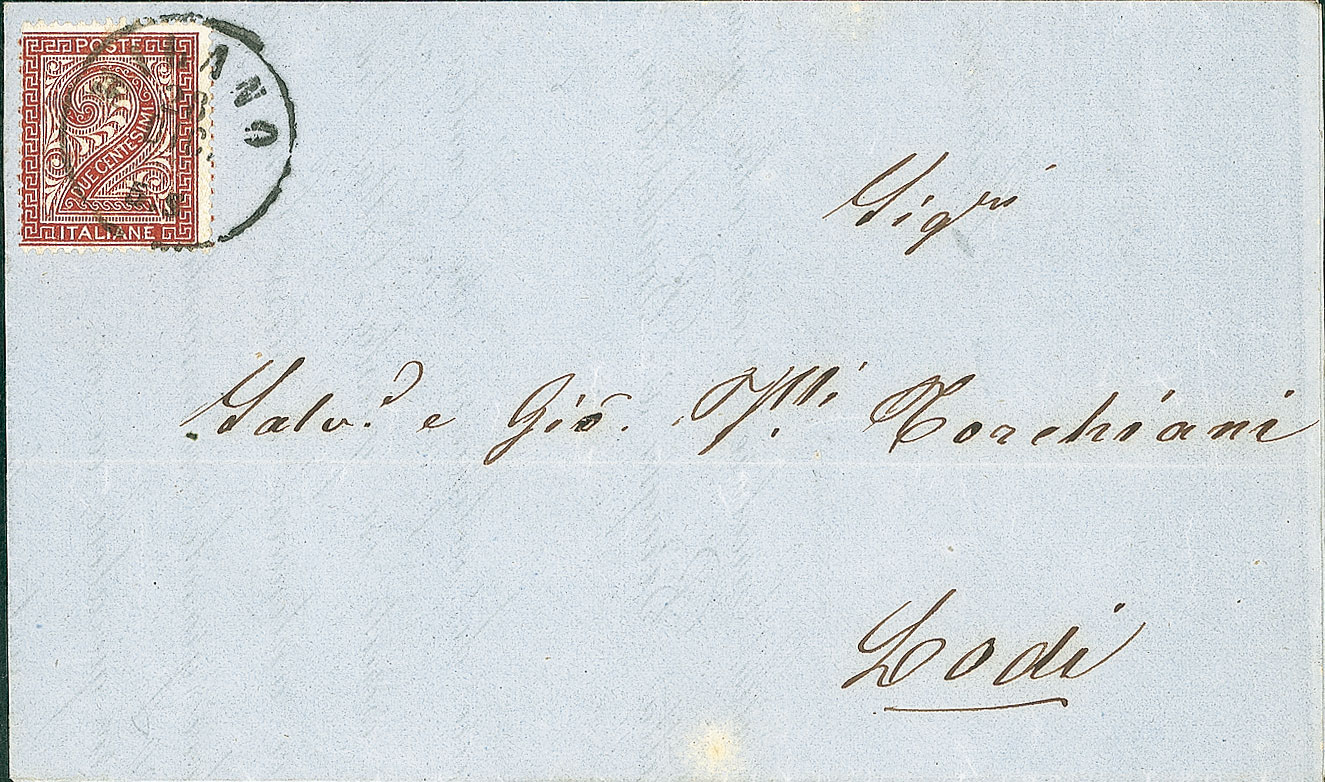 POSTE
DUE CENTESIMI
ITALIANE
MILANO
28
Sigri
Salv.e e Gio. F.lli Torchiani
Lodi